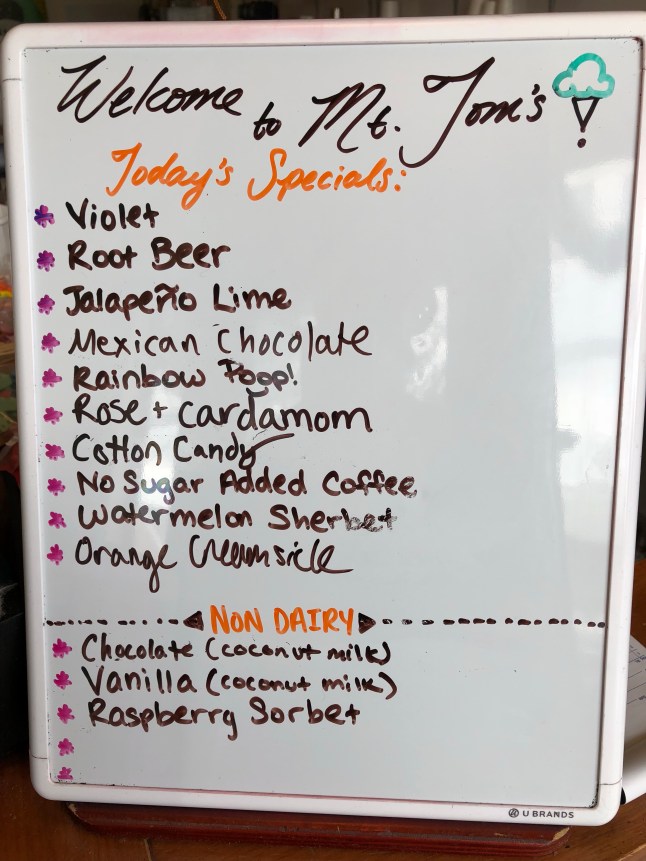 Welcome to Mt. Tom's
Today's Specials:
Violet
Root Beer
Jalapeño Lime
Mexican Chocolate
Rainbow Poop!
Rose + Cardamom
Cotton Candy
No Sugar Added Coffee
Watermelon Sherbet
Orange Creamsicle
NON DAIRY
Chocolate (coconut milk)
Vanilla (coconut milk)
Raspberry Sorbet
U BRANDS